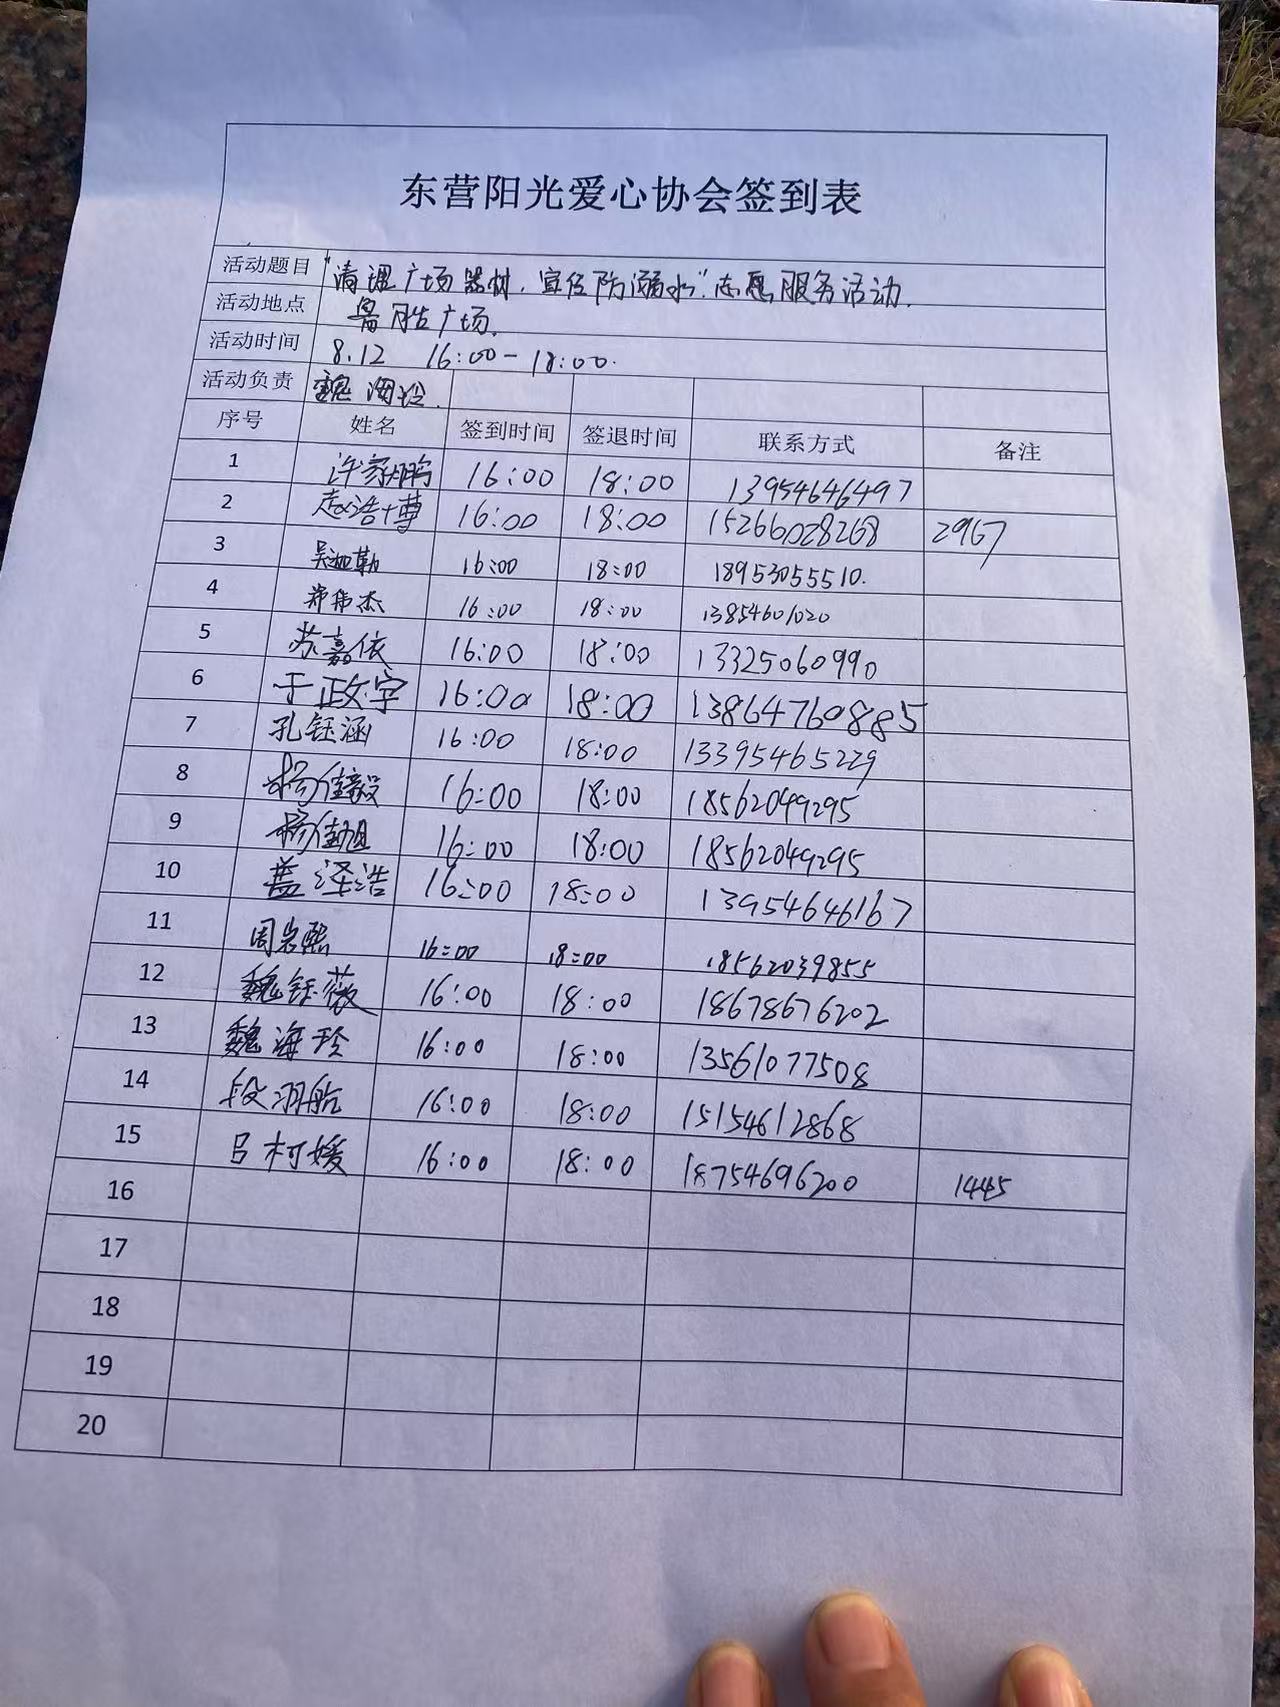 东营阳光爱心协会签到表
活动题目 "清理广场器材,宣传防溺水"志愿服务活动.
活动地点 鲁胜广场.
活动时间 8.12 16:00-18:00.
活动负责 魏海玲.
序号 姓名 签到时间 签退时间 联系方式 备注
1 许家鹏 16:00 18:00 13954646497
2 赵浩博 16:00 18:00 15266028268 2967
3 吴 16:00 18:00 18953055510.
4 郑伟杰 16:00 18:00 13854601020
5 苏嘉依 16:00 18:00 13325060990
6 于政宇 16:00 18:00 13864760885
7 孔钰涵 16:00 18:00 13395465229
8 杨佳毅 16:00 18:00 18562049295
9 杨佳旭 16:00 18:00 18562049295
10 盖泽浩 16:00 18:00 13954646167
11 周岩熙 16:00 18:00 18562039855
12 魏钰薇 16:00 18:00 18678676202
13 魏海玲 16:00 18:00 13561077508
14 段羽航 16:00 18:00 15154612868
15 吕柯媛 16:00 18:00 18754696200 1445
16
17
18
19
20